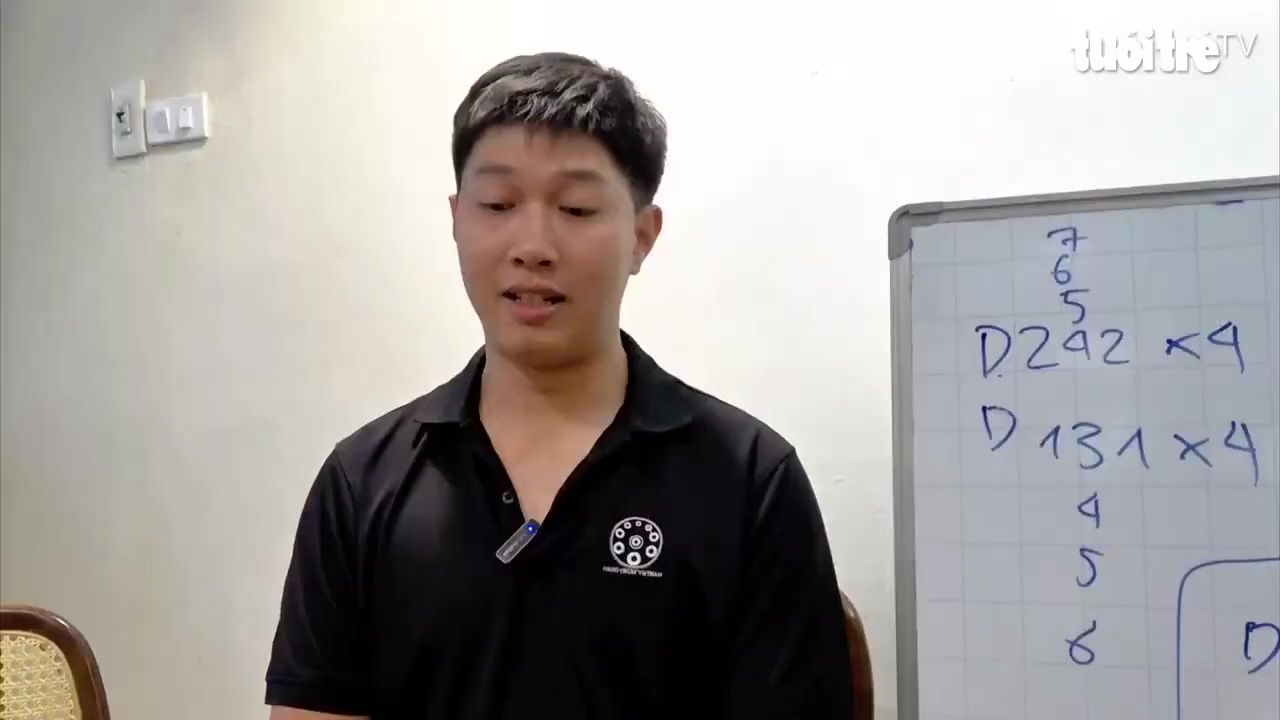 tuổi trẻ TV
7
6
5
D 242 x 4
D 131 x 4
4
5
6
D
HAND DRUM VIETNAM